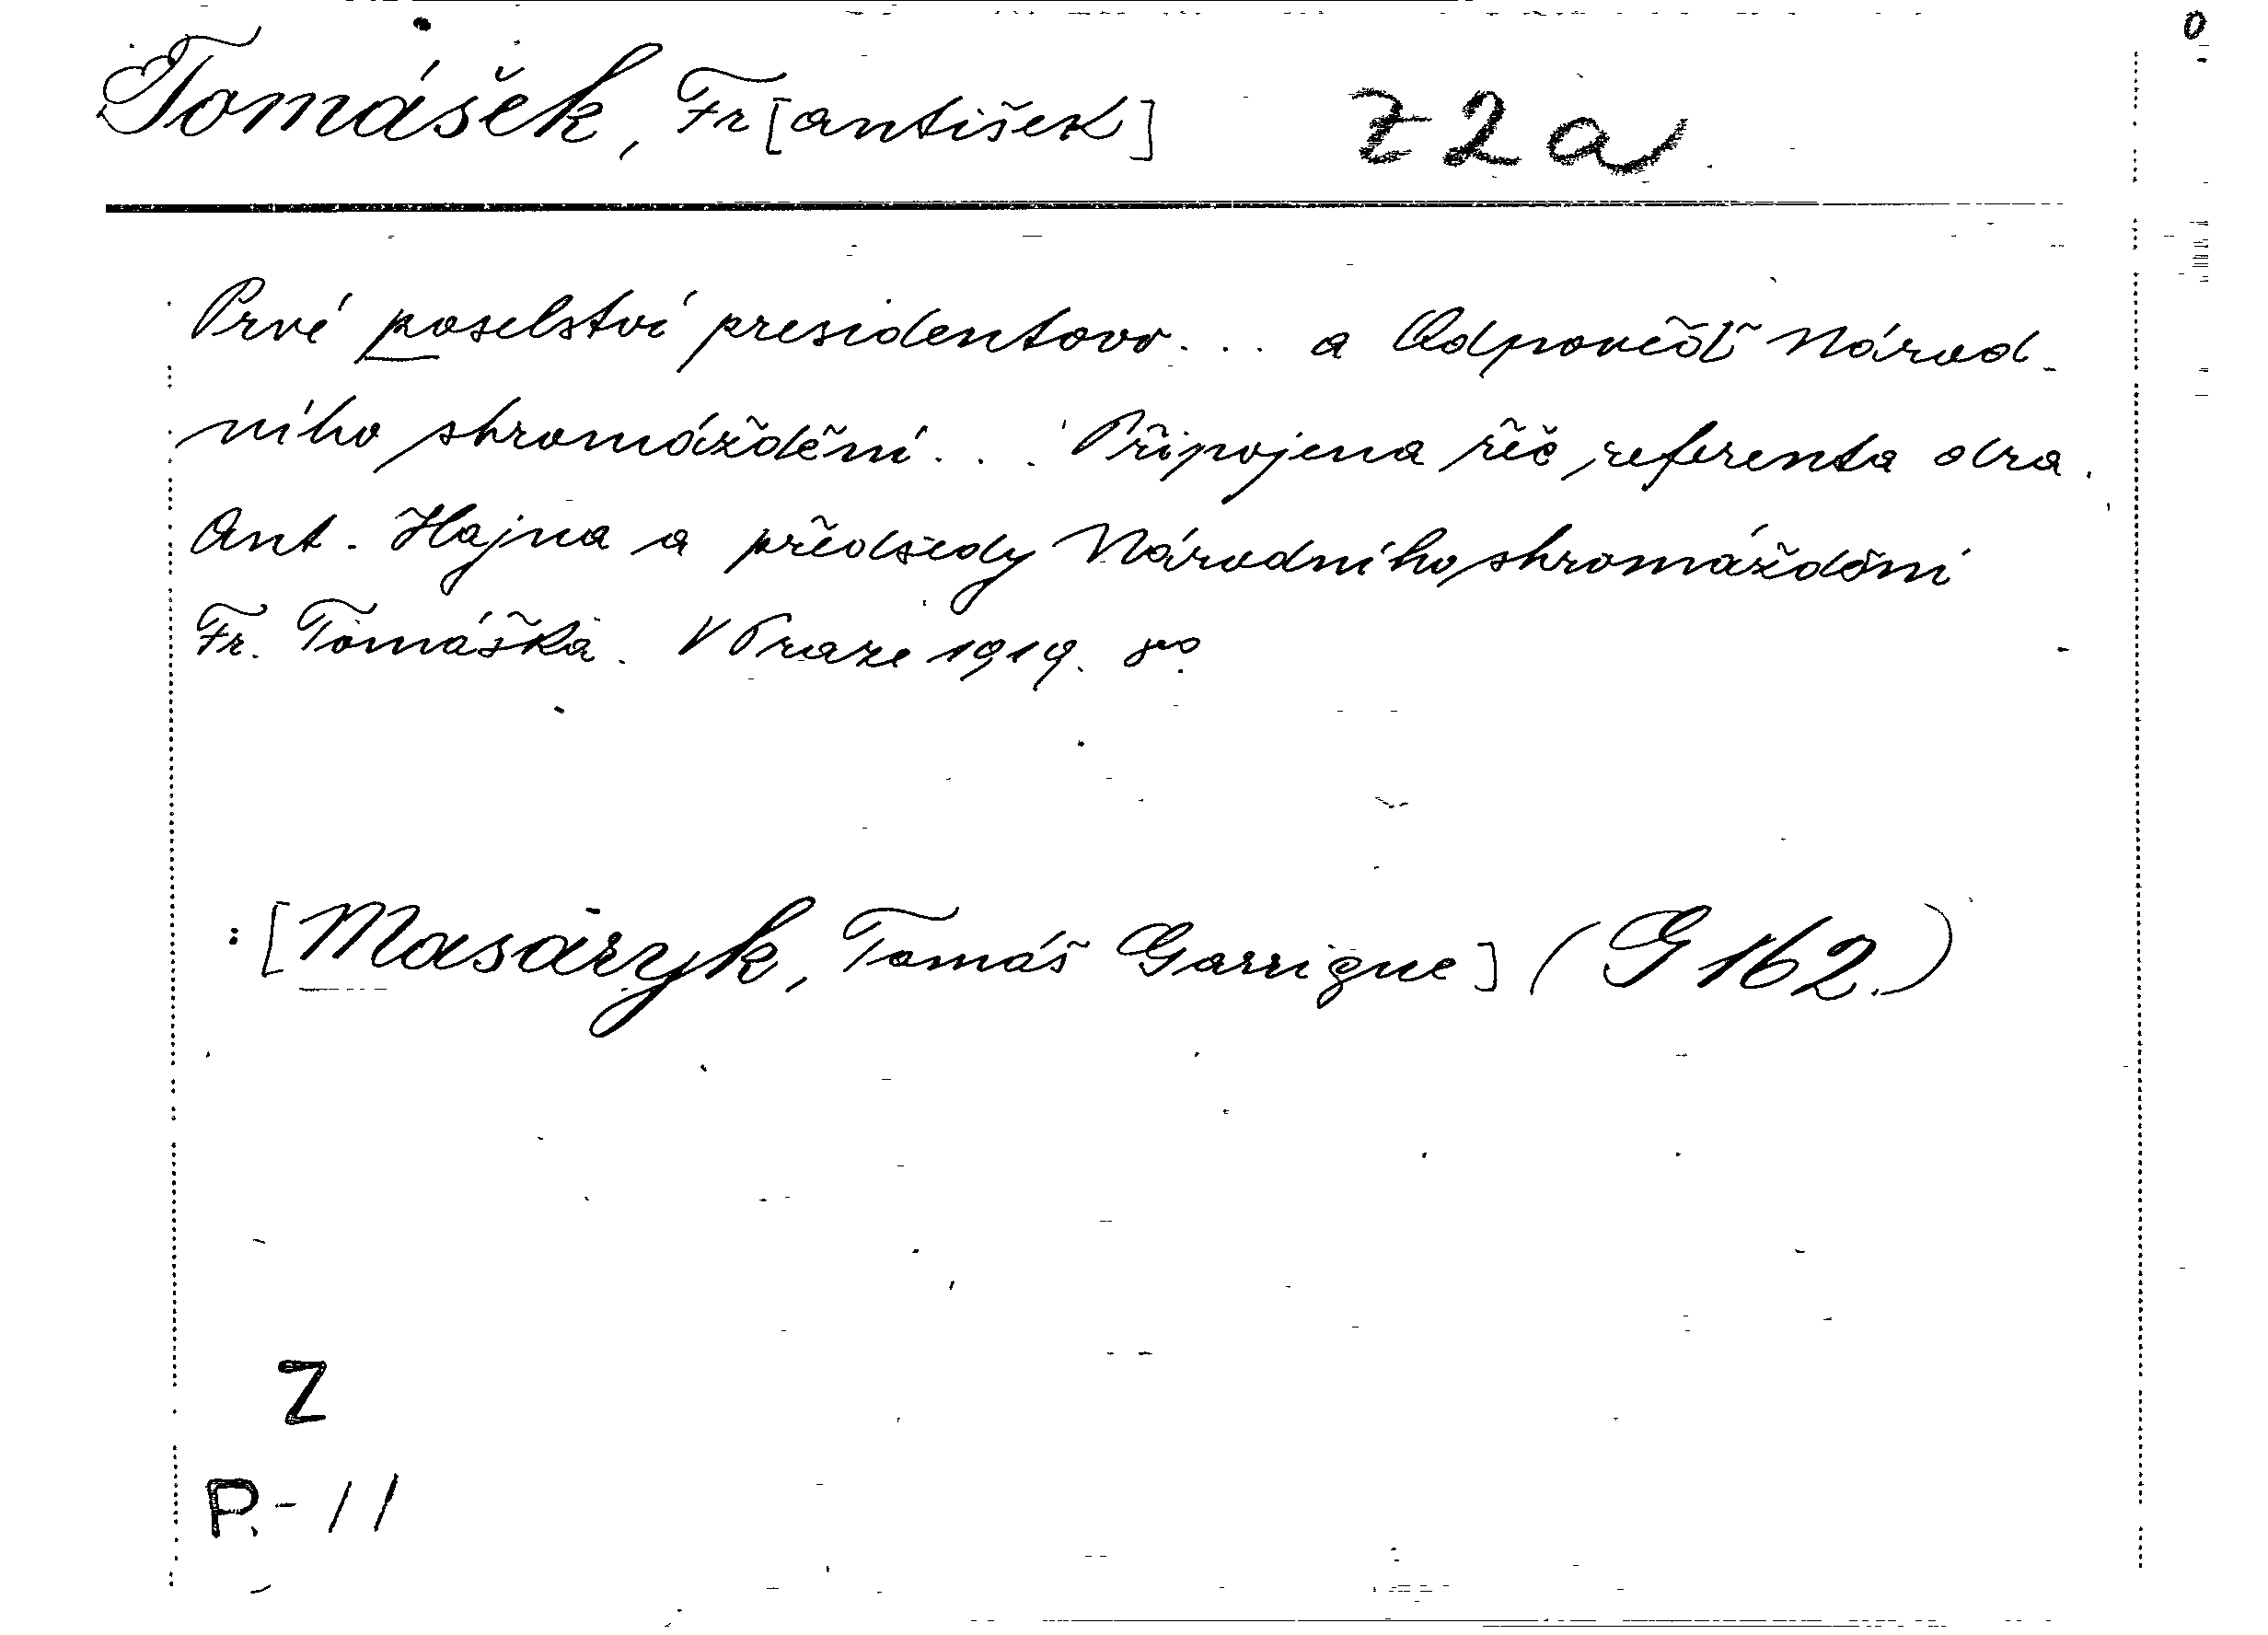 Tomášek, Fr[antišek] Z2a
Prvé poselství presidentovo... a Odpověď Národ-
ního shromáždění... Připojena řeč referenta dra.
Ant. Hajna a předsedy Národního shromáždění
Fr. Tomáška. V Praze 1919. 8°.
: [Masaryk, Tomáš Garrigue] (G 162.)
Z
P.-11